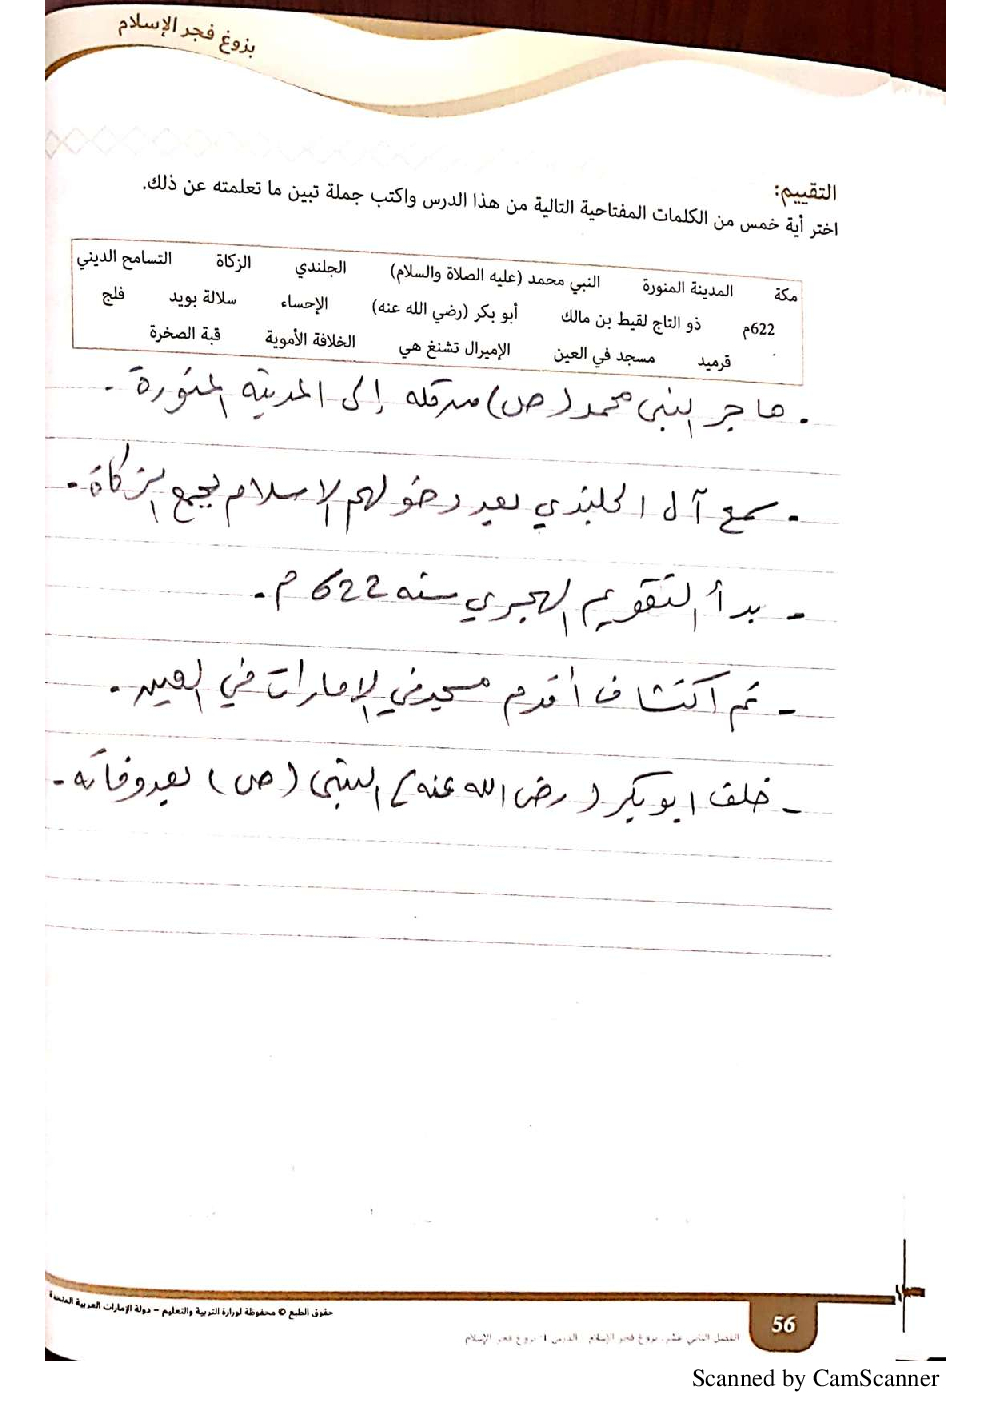 بزوغ فجر الإسلام
التقييم:
اختر أية خمس من الكلمات المفتاحية التالية من هذا الدرس واكتب جملة تبين ما تعلمته عن ذلك.
مكة المدينة المنورة النبي محمد (عليه الصلاة والسلام) الجلندي الزكاة التسامح الديني
622م ذو التاج لقيط بن مالك أبو بكر (رضي الله عنه) الإحساء سلالة بويد فلج
قرميد مسجد في العين الإميرال تشنغ هي الخلافة الأموية قبة الصخرة
- هاجر النبي محمد (ص) من مكة إلى المدينة المنورة.
- سمع آل الجلندي بعد دخولهم الاسلام بجمع الزكاة.
- بدأ التقويم الهجري سنة 622 م.
- تم اكتشاف أقدم مسجد في الامارات في العين.
- خلف ابو بكر (رضي الله عنه) النبي (ص) بعد وفاته.
حقوق الطبع © محفوظة لوزارة التربية والتعليم – دولة الإمارات العربية المتحدة
56
الفصل الثاني عشر، بزوغ فجر الإسلام الدرس 4: بزوغ فجر الإسلام
Scanned by CamScanner